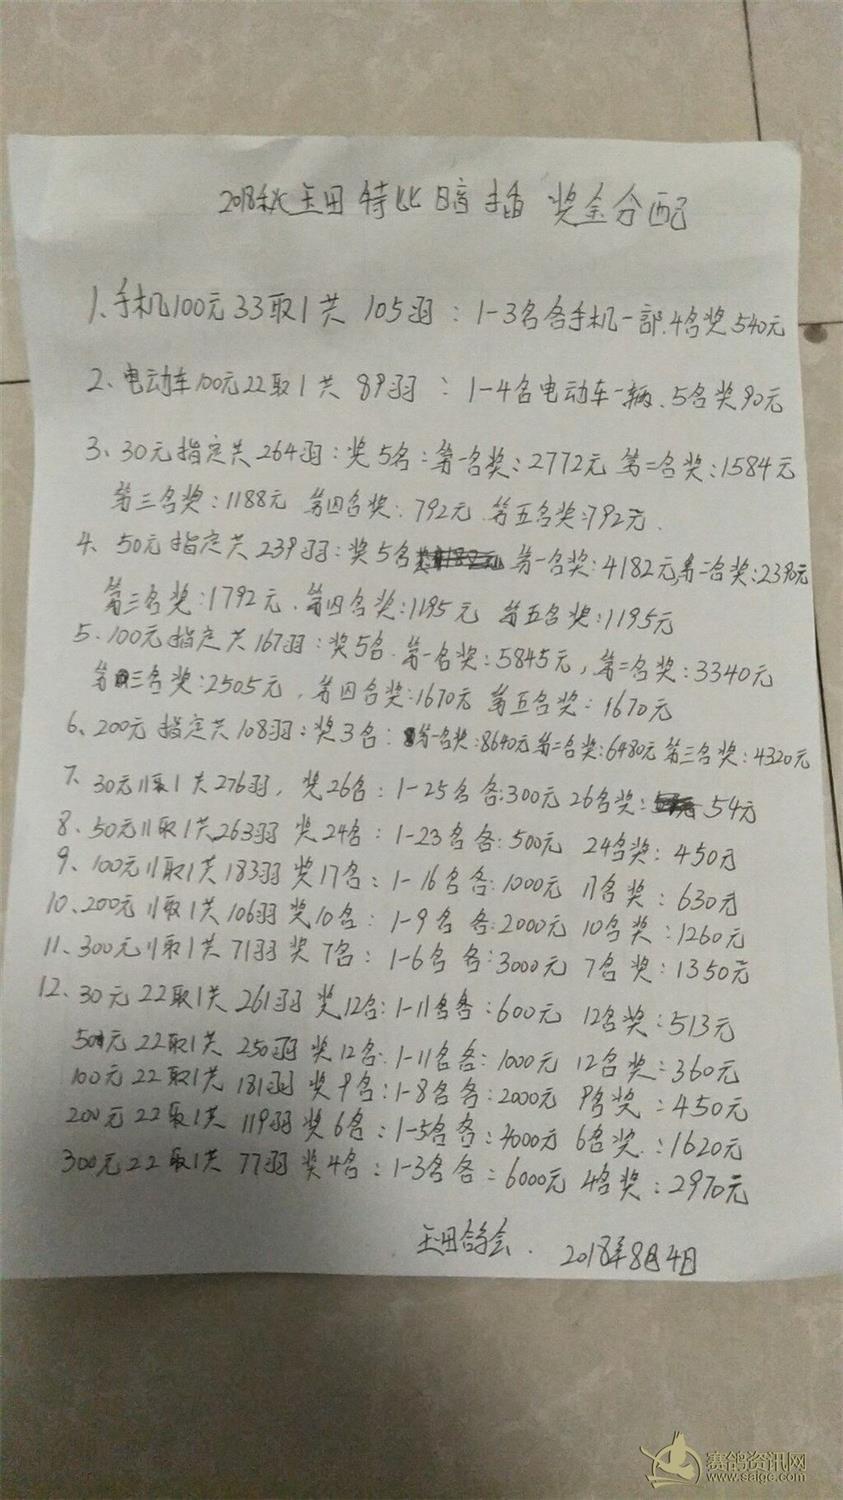 2018秋玉田特比暗插奖金分配
1、手机100元33取1共 105羽:1-3名各手机一部.4名奖540元
2、电动车100元22取1共 89羽:1-4名电动车一辆、5名奖90元
3、30元指定共264羽:奖5名:第一名奖:2772元 第二名奖:1584元
第三名奖:1188元 第四名奖:792元 第五名奖:792元.
4、50元指定共239羽:奖5名 第一名奖:4182元第二名奖:2390元
第三名奖:1792元.第四名奖:1195元 第五名奖:1195元
5、100元指定共167羽:奖5名.第一名奖:5845元,第二名奖:3340元
第三名奖:2505元,第四名奖:1670元 第五名奖:1670元
6、200元指定共108羽:奖3名:第一名奖:8640元第二名奖:6480元 第三名奖:4320元
7、30元11取1共276羽,奖26名:1-25名各:300元 26名奖:54元
8、50元11取1共263羽 奖24名:1-23名各:500元 24名奖:450元
9、100元11取1共183羽 奖17名:1-16名各:1000元 17名奖:630元
10、200元11取1共106羽奖10名:1-9名各:2000元 10名奖:1260元
11、300元11取1共71羽 奖7名:1-6名各:3000元 7名奖:1350元
12、30元22取1共261羽 奖12名:1-11名各:600元 12名奖:513元
50元22取1共 250羽 奖12名:1-11名各:1000元 12名奖:360元
100元22取1共 181羽 奖9名:1-8名各:2000元 9名奖:450元
200元22取1共 119羽 奖6名:1-5名各:4000元 6名奖:1620元
300元22取1共 77羽 奖4名:1-3名各:6000元 4名奖:2970元
玉田鸽会. 2018年8月4日
赛鸽资讯网
www.saige.com